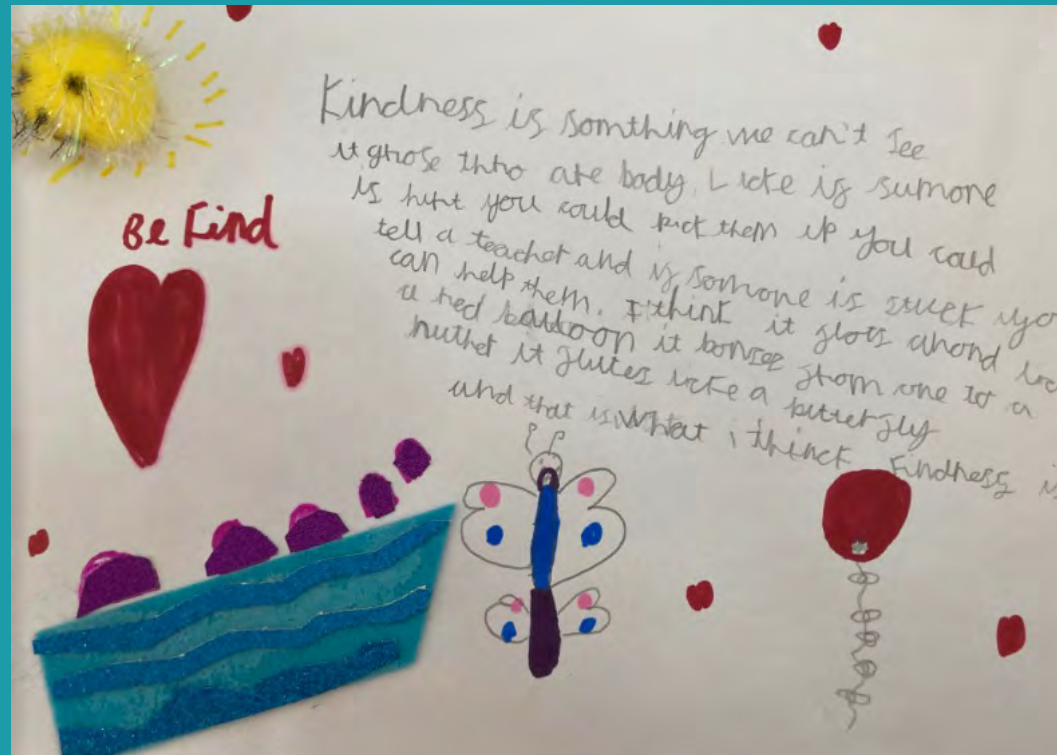 Kindness is somthing we can't See
it ghose thro are body. Licke if sumone
is hurt you could pick them up you could
tell a teacher and if somone is stuck you
can help them. I think it flots arond
a red balloon it bonsee from one to a
nuther it flutes licke a butterfly
and that is What i thinck Kindness is
Be Kind